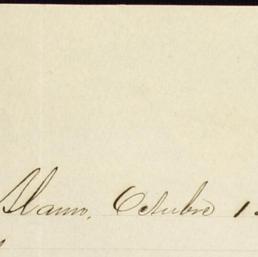 Alamo, Octubre 1